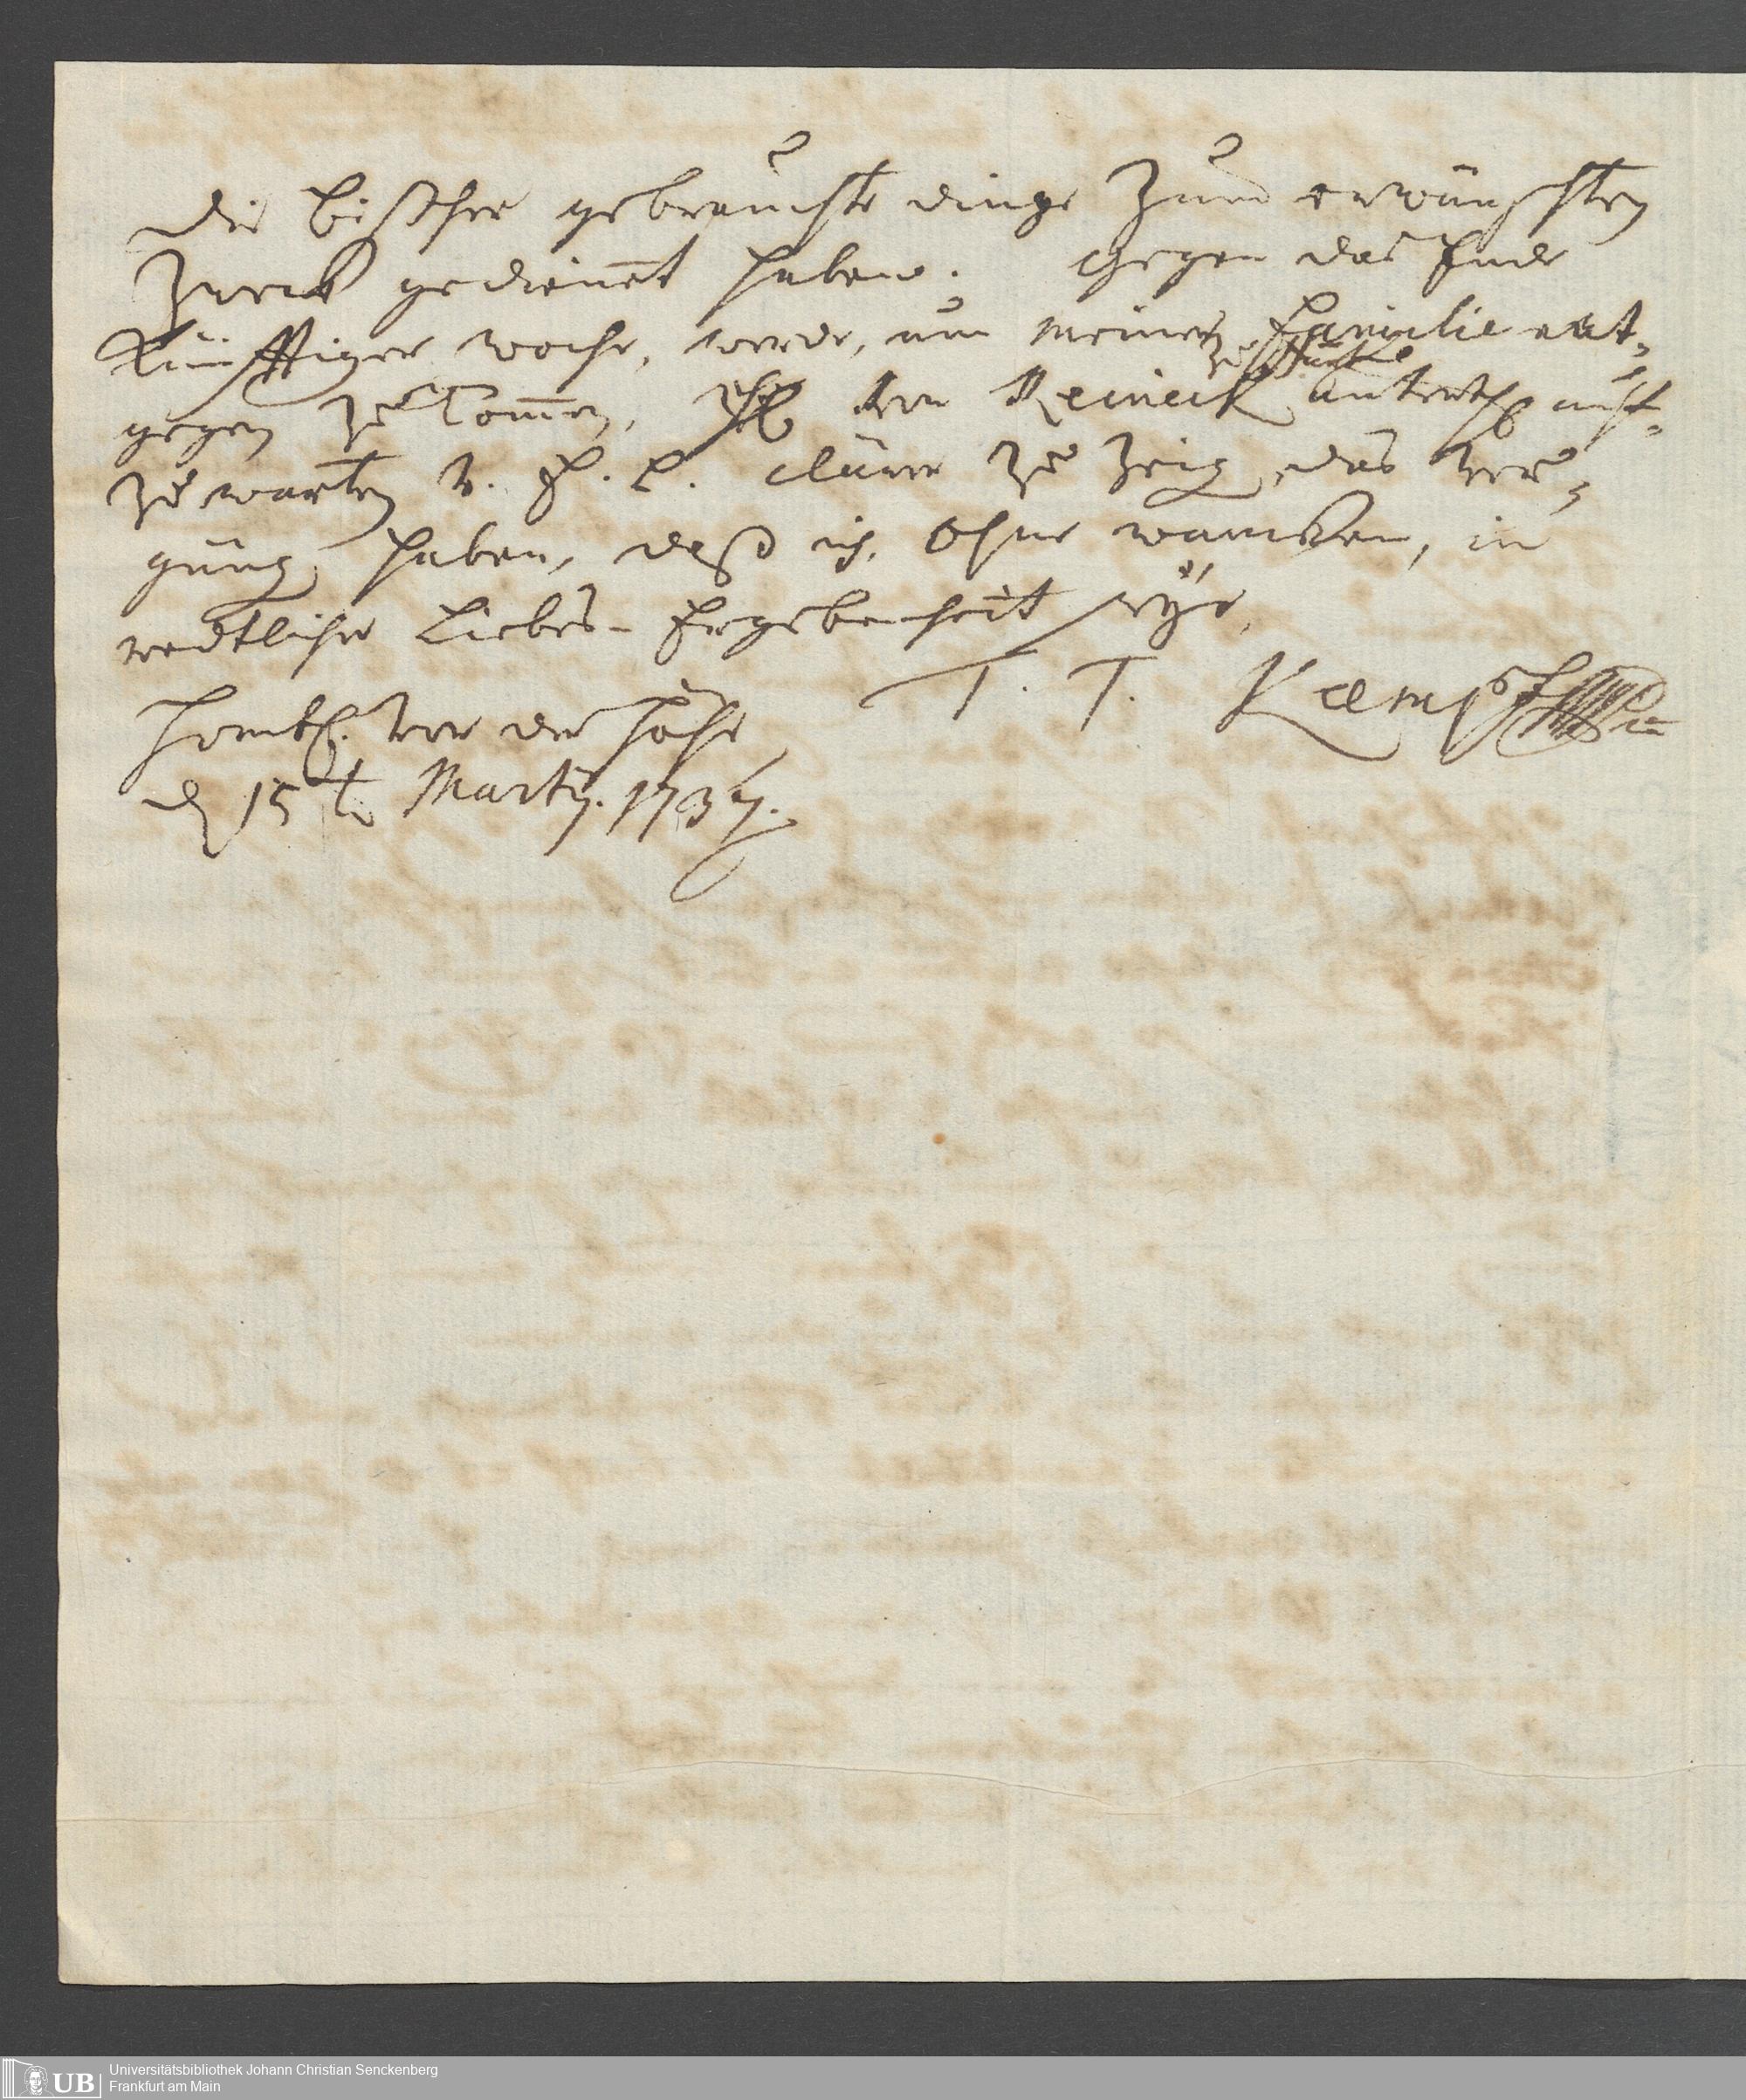 die bißher gebrauchte dinge zum erwünschten
Zweck gedienet haben. Gegen das Ende
Künfftiger woche, werde, um meiner Familie ent-
gegen zu kommen, H. von Reineck zu Franckf. auf-
zuwarten u. E. L. zu zeigen das Ver-
gnügen haben, daß ich, ohne wancken, in
redtlicher Liebes-Ergebenheit seye,
T. T. Kaempf
Homb. vor der Höhe
d 15 t. Martij. 1737.
UB Universitätsbibliothek Johann Christian Senckenberg
Frankfurt am Main